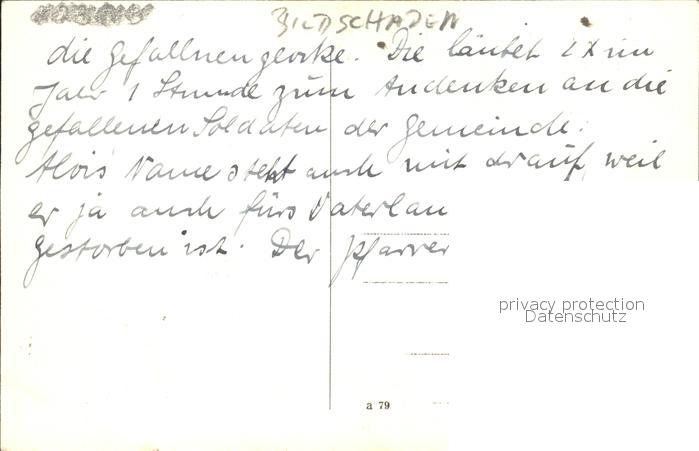 BILDSCHADEN
die Gefallnenglocke. Die läutet 1x im
Jahr 1 Stunde zum Andenken an die
gefallenen Soldaten der Gemeinde.
Alois Name steht auch mit drauf, weil
er ja auch fürs Vaterlan
gestorben ist. Der Pfarrer
privacy protection
Datenschutz
a 79